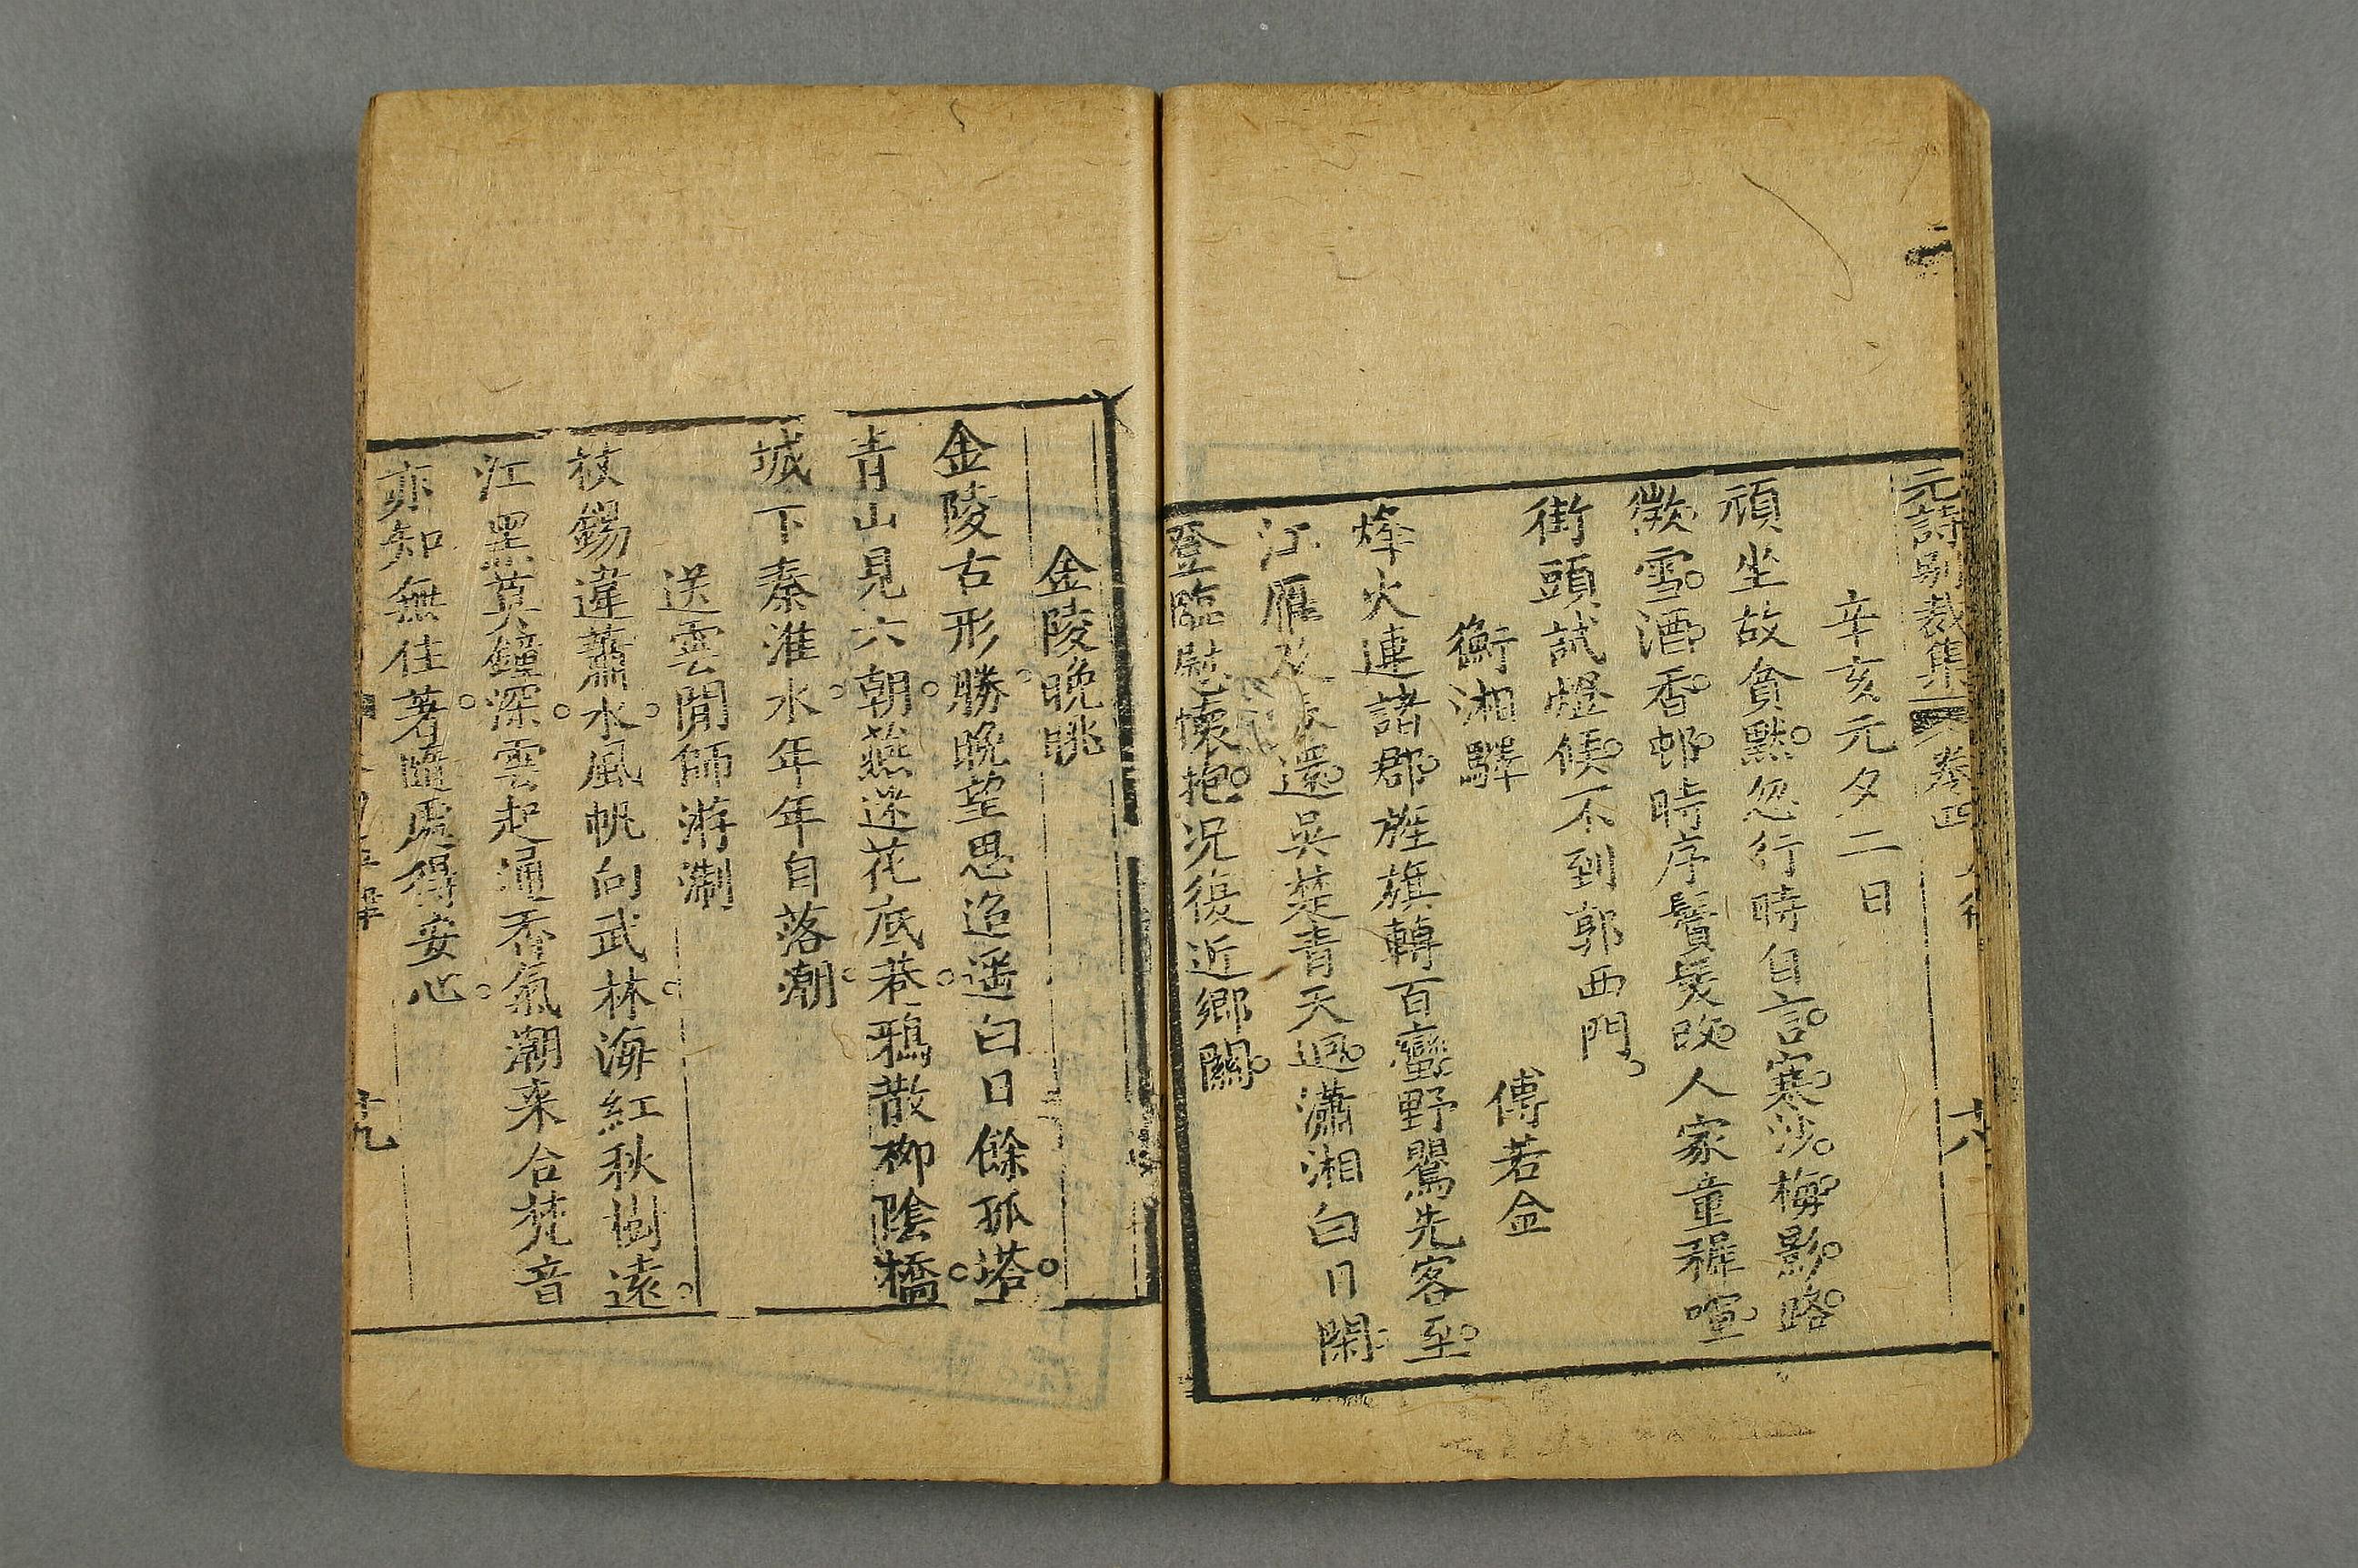 元詩別裁集 卷四 六
辛亥元夕二日
頑坐故貧黙忽行時自言寒沙梅影路
微雪酒香邨時序鬢髮改人家童稺喧
街頭試燈候不到郭西門
衡湘驛 傅若金
烽火連諸郡旌旗轉百蠻野鷺先客至
江雁及春還吳楚青天逈瀟湘白日閑
登臨慰懷抱况復近鄉關
金陵晚眺
金陵古形勝晚望思迢遥白日餘孤塔
青山見六朝燕迷花底巷鴉散柳陰橋
城下秦淮水年年自落潮
送雲閒師游淛
杖錫違蕭水風帆向武林海紅秋樹遠
江黑莫鐘深雲起通香氣潮来合梵音
亦知無住著隨處得安心
十九